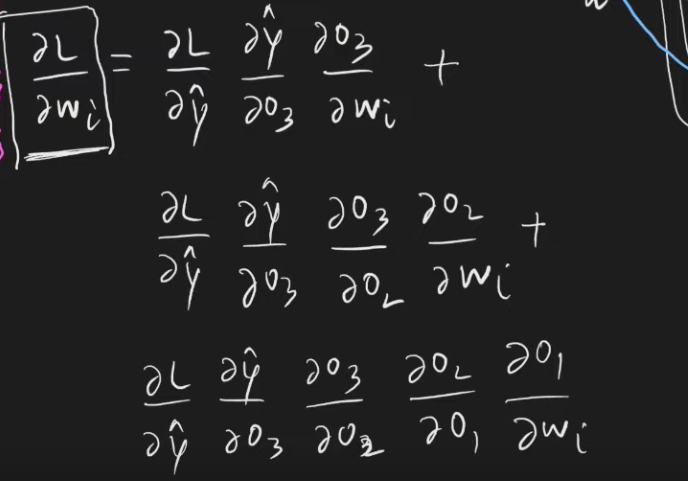 ∂L/∂w_i = ∂L/∂ŷ ∂ŷ/∂O_3 ∂O_3/∂w_i +
∂L/∂ŷ ∂ŷ/∂O_3 ∂O_3/∂O_2 ∂O_2/∂w_i +
∂L/∂ŷ ∂ŷ/∂O_3 ∂O_3/∂O_2 ∂O_2/∂O_1 ∂O_1/∂w_i